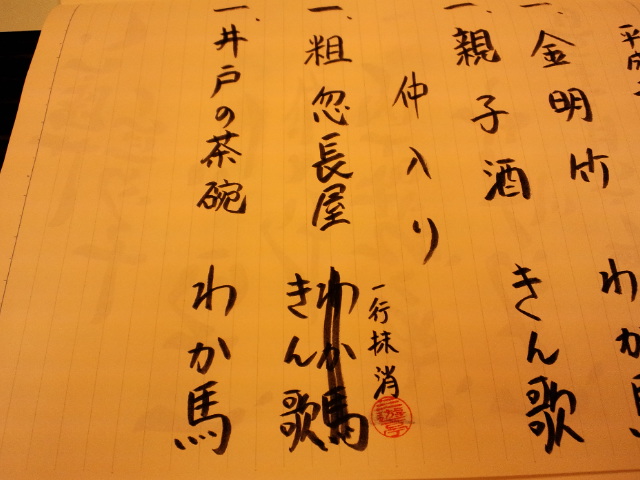 平成
一、金明竹 わか馬
一、親子酒 きん歌
仲入り
一行抹消
一、粗忽長屋 わか馬 きん歌
一、井戸の茶碗 わか馬